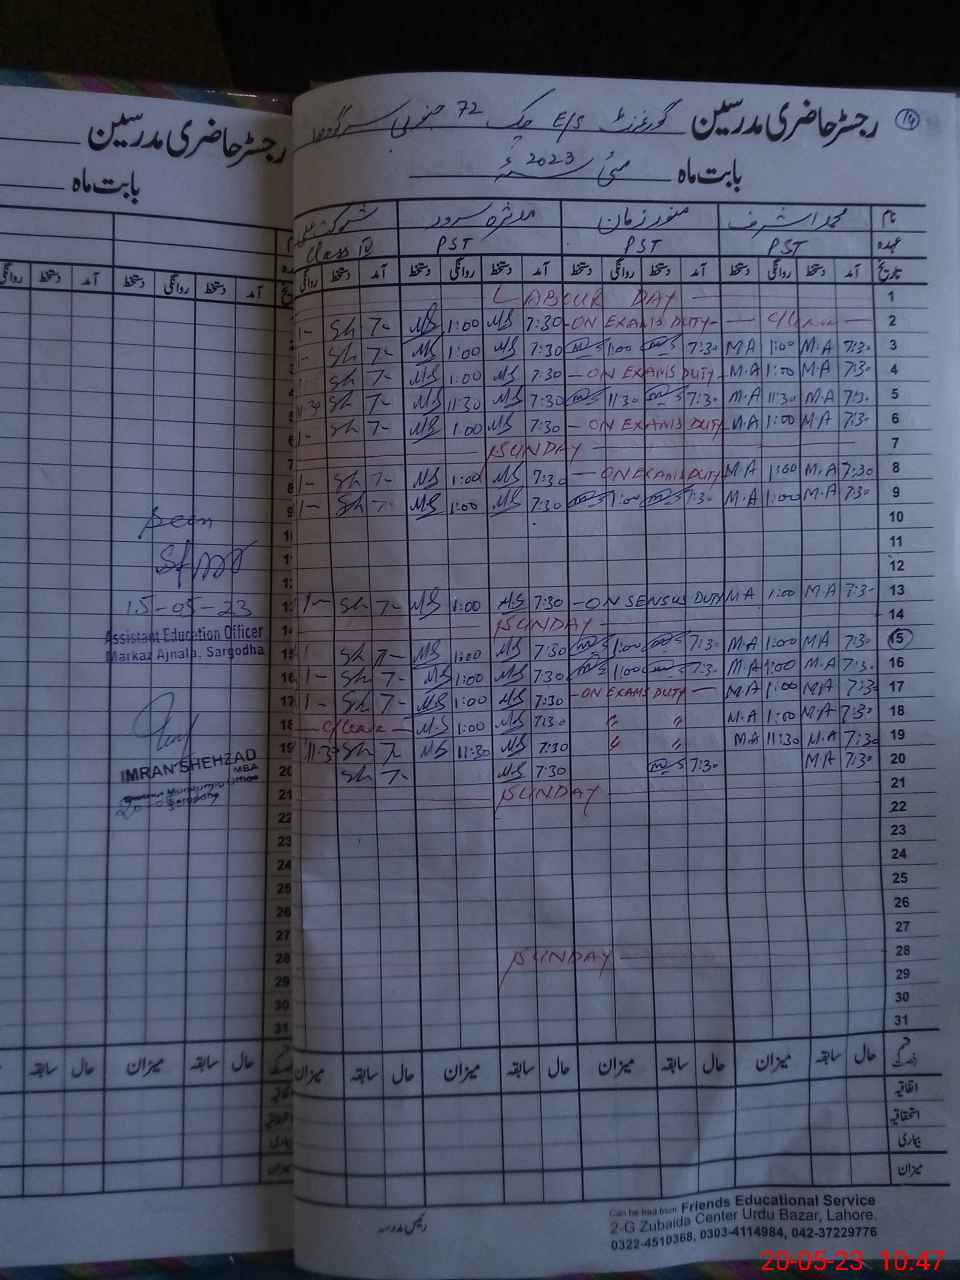 رجسٹر حاضری مدرسین
بابت ماہ
آمد دستخط روانگی دستخط آمد دستخط روانگی
Seen
15-05-23
Assistant Education Officer
Markaz Ajnala, Sargodha
IMRAN SHEHZAD
MBA
14
رجسٹر حاضری مدرسین گورنمنٹ E/S چک 72 جنوبی سرگودھا
بابت ماہ مئی 2023ء
نام محمد اشرف منور زمان
عہدہ PST PST PST Class IV
تاریخ آمد دستخط روانگی دستخط آمد دستخط روانگی دستخط آمد دستخط روانگی دستخط آمد دستخط روانگی
LABOUR DAY 1
1- Sh 7- MS 1:00 MS 7:30 -ON EXAMS DUTY- C/Leave 2
1- Sh 7- MS 1:00 MS 7:30 1:00 7:30 M.A 1:00 M.A 7:30 3
Sh 7- MS 1:00 MS 7:30 -ON EXAMS DUTY- M.A 1:00 M.A 7:30 4
11:30 Sh 7- MS 11:30 MS 7:30 11:30 7:30 M.A 11:30 M.A 7:30 5
1- Sh 7- MS 1:00 MS 7:30 -ON EXAMS DUTY M.A 1:00 M.A 7:30 6
SUNDAY 7
1- Sh 7- MS 1:00 MS 7:30 -ON EXAMS DUTY M.A 1:00 M.A 7:30 8
1- Sh 7- MS 1:00 MS 7:30 1:00 7:30 M.A 1:00 M.A 7:30 9
10
11
12
1- Sh 7- MS 1:00 MS 7:30 -ON SENSUS DUTY M.A 1:00 M.A 7:30 13
SUNDAY 14
1 Sh 7- MS 1:00 MS 7:30 1:00 7:30 M.A 1:00 M.A 7:30 15
1- Sh 7- MS 1:00 MS 7:30 1:00 7:30 M.A 1:00 M.A 7:30 16
1- Sh 7- MS 1:00 MS 7:30 -ON EXAMS DUTY- M.A 1:00 M.A 7:30 17
C/Leave MS 1:00 MS 7:30 〃 〃 M.A 1:00 M.A 7:30 18
11:30 Sh 7- MS 11:30 MS 7:30 〃 〃 M.A 11:30 M.A 7:30 19
Sh 7- MS 7:30 7:30 M.A 7:30 20
SUNDAY 21
22
23
24
25
26
27
SUNDAY 28
29
30
31
حال سابقہ میزان حال سابقہ میزان حال سابقہ میزان حال سابقہ میزان
اتفاقیہ
استحقاقیہ
بیماری
میزان
رئیس مدرسہ
Can be had from: Friends Educational Service
2-G Zubaida Center Urdu Bazar, Lahore.
0322-4510368, 0303-4114984, 042-37229776
20-05-23 10:47